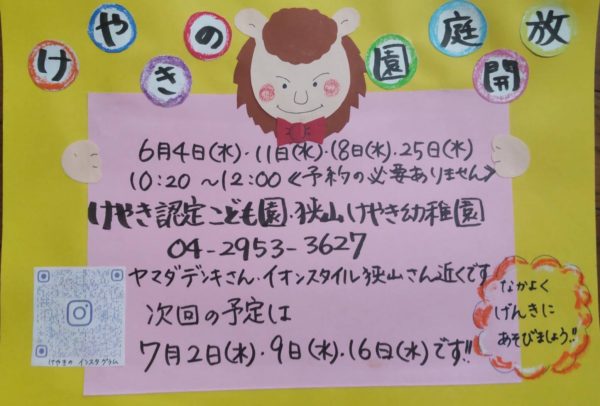 けやきの園庭開放
6月4日(水)・11日(水)・18日(水)・25日(水)
10:20～12:00《予約の必要ありません》
けやき認定こども園・狭山けやき幼稚園
04-2953-3627
ヤマダデンキさん・イオンスタイル狭山さん近くです
次回の予定は
7月2日(水)・9日(水)・16日(水)です!!
けやきの インスタグラム
なかよく
げんきに
あそびましょう!!